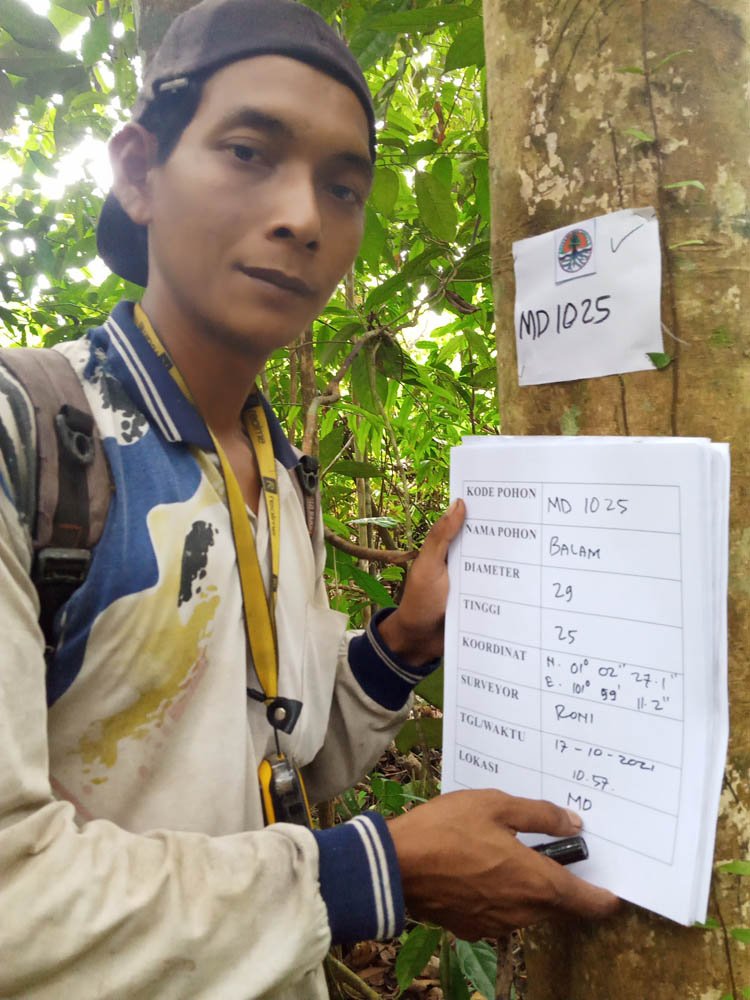 MD 1025
KODE POHON MD 1025
NAMA POHON BALAM
DIAMETER 29
TINGGI 25
KOORDINAT N. 01° 02" 27.1"
E. 101° 59' 11.2"
SURVEYOR RONI
TGL/WAKTU 17-10-2021
10.57.
LOKASI MD
realme